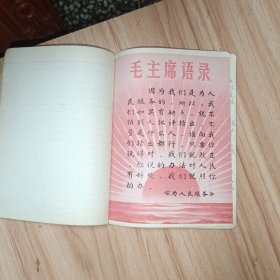 毛主席语录
因为我们是为人
民服务的，所以，我
们如果有缺点，就不
怕别人批评指出。不
管是什么人，谁向我
们指出都行。只要你
说得对，我们就改正。
你说的办法对人民
有好处，我们就照你
的办。
《为人民服务》